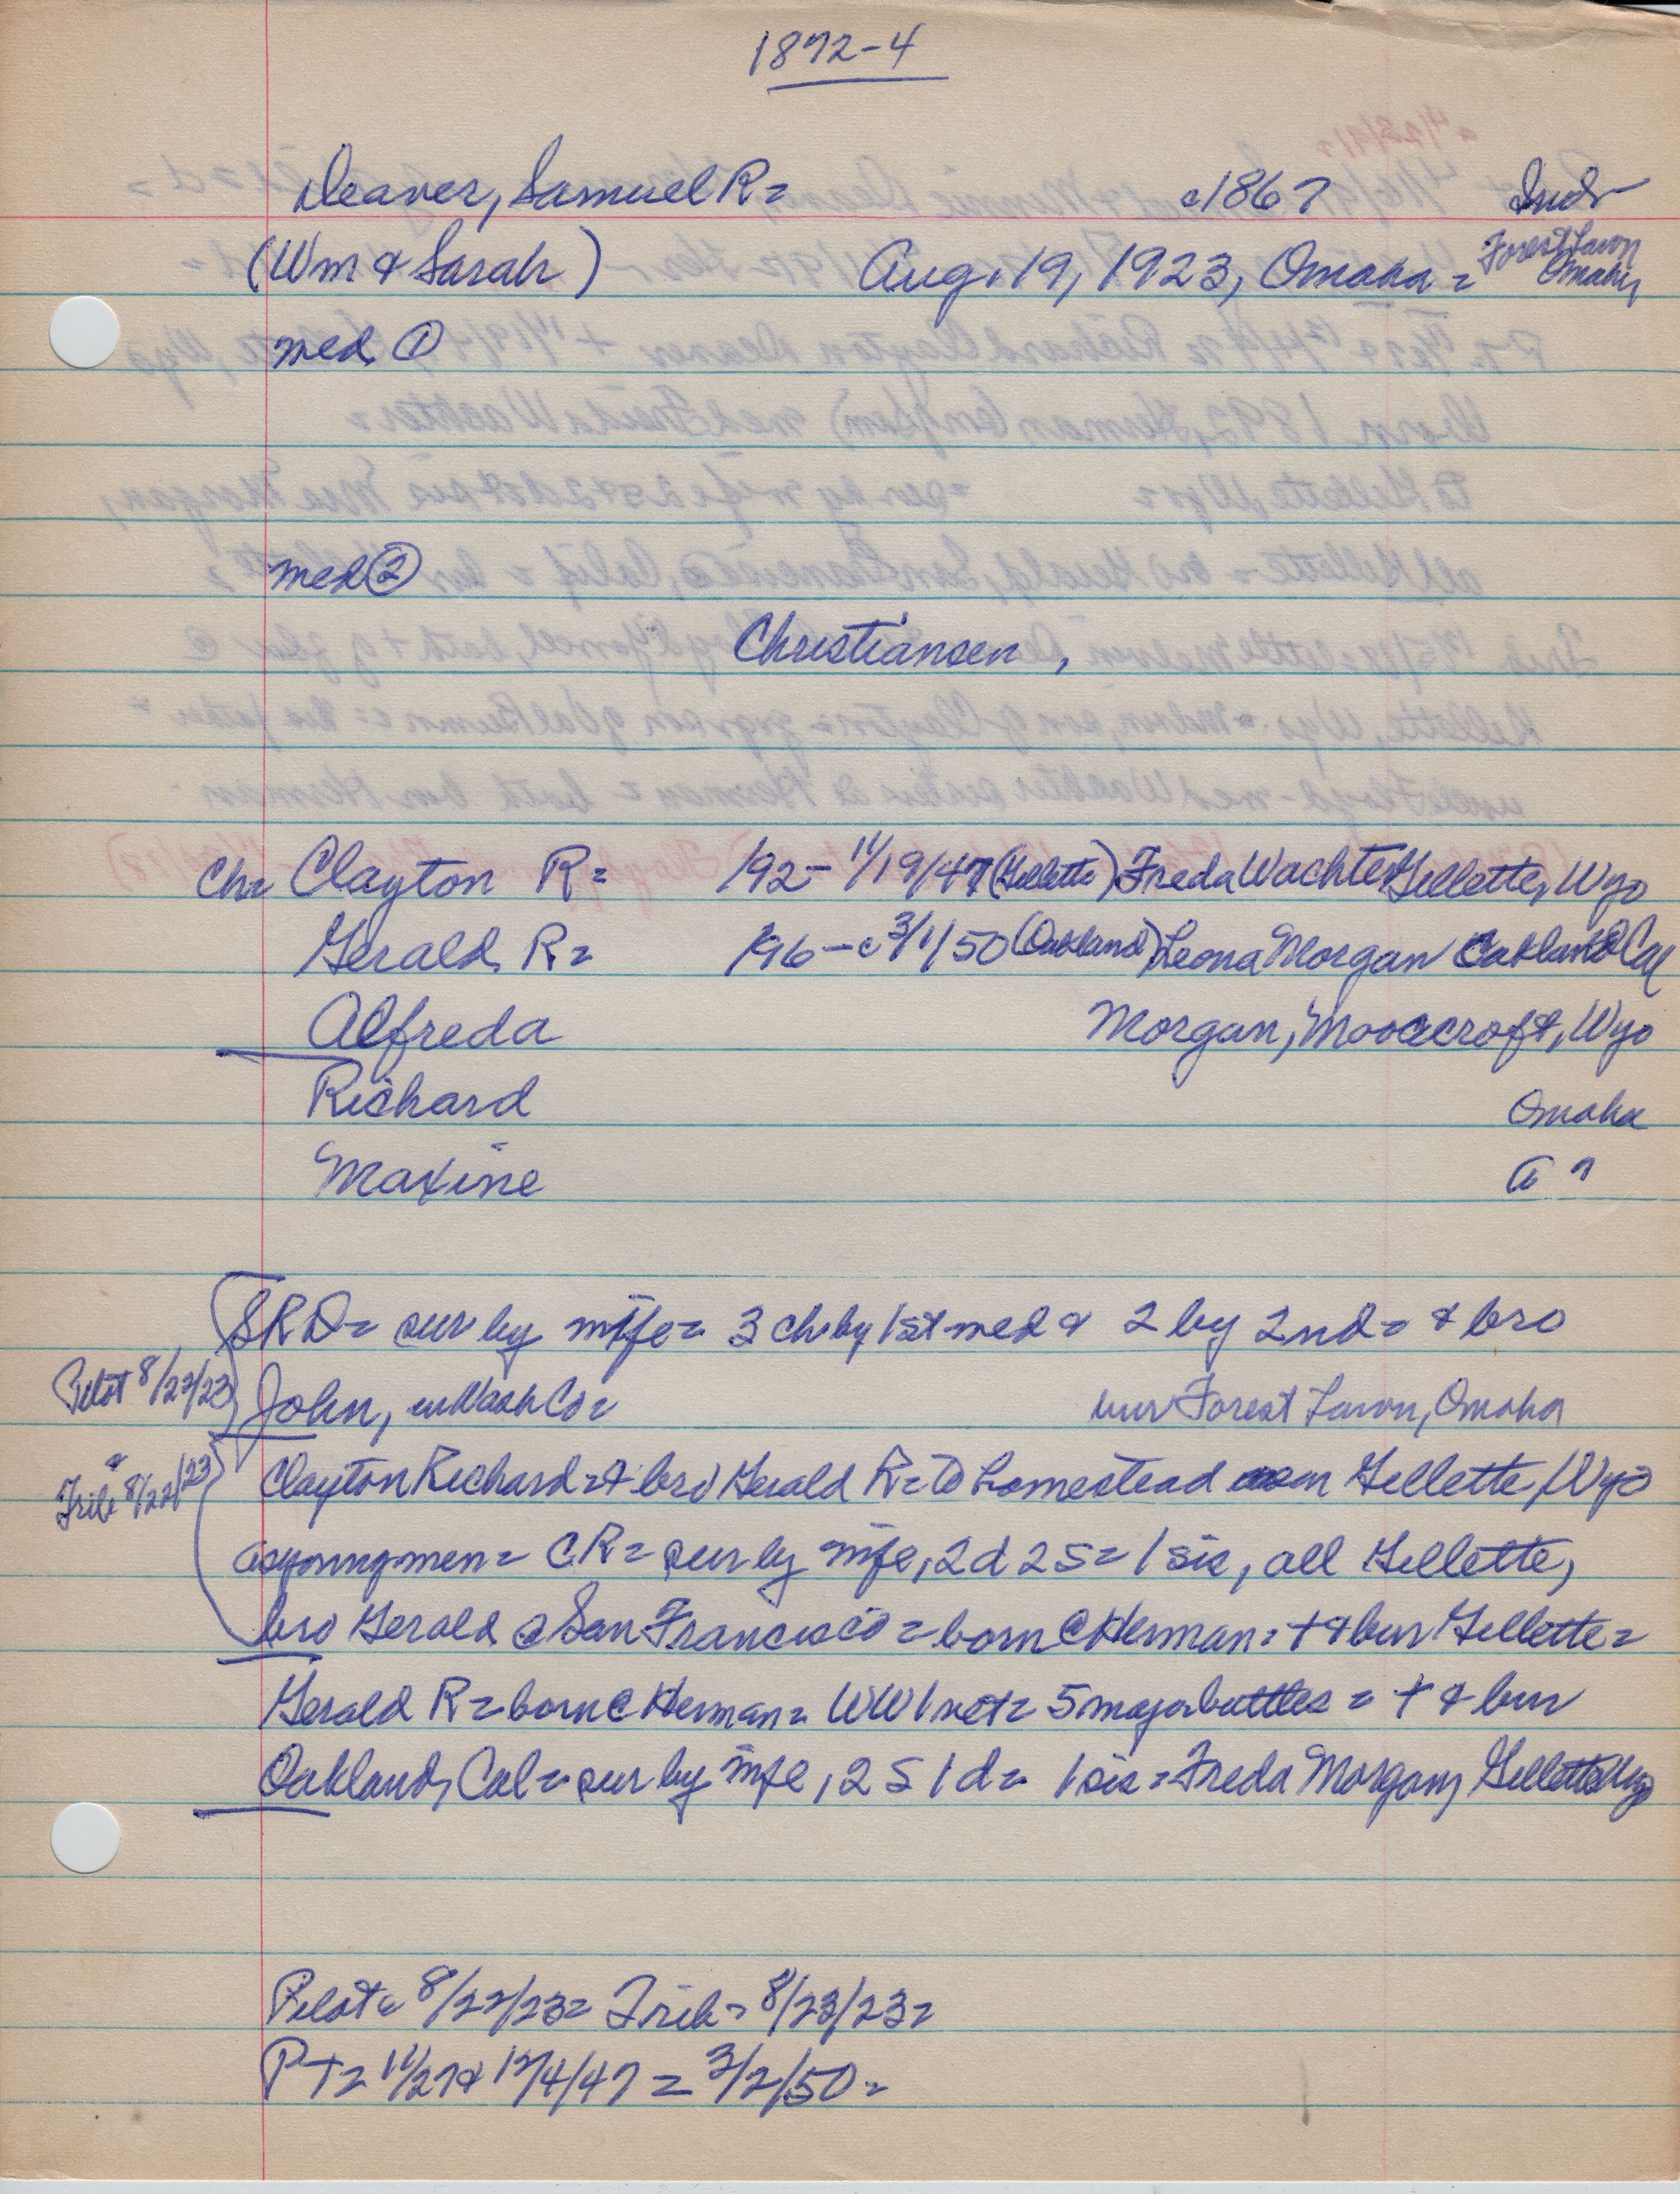 1872-4
Deaver, Samuel R= c1867 Ind-
(Wm & Sarah) Aug. 19, 1923, Omaha = Forest Lawn Omaha,
med ①
med ②
Christiansen,
Ch= Clayton R= 192- 11/19/47 (Gillette) Freda Wachter Gillette, Wyo
Gerald R= 196- c 3/1/50 (Oakland) Leona Morgan Oakland Cal
Alfreda Morgan, Moorcroft, Wyo
Richard Omaha
Maxine a "
SRD= sur by wife= 3 ch by 1st med & 2 by 2nd= & bro
Pilot 8/22/23 John, in Wash Co= bur Forest Lawn, Omaha
& Trib 8/22/23 Clayton Richard=& bro Gerald R= to homestead near Gillette, Wyo
as young men= CR= sur by wife, 2 d 2 s= 1 sis, all Gillette,
bro Gerald @ San Francisco= born @ Herman= + & bur Gillette=
Gerald R= born @ Herman= WW1 vet= 5 major battles= + & bur
Oakland, Cal= sur by wife, 2 s 1 d= 1 sis= Freda Morgan, Gillette Wyo
Pilot= 8/22/23= Trib= 8/23/23=
PT= 11/27 & 12/4/47 = 3/2/50=